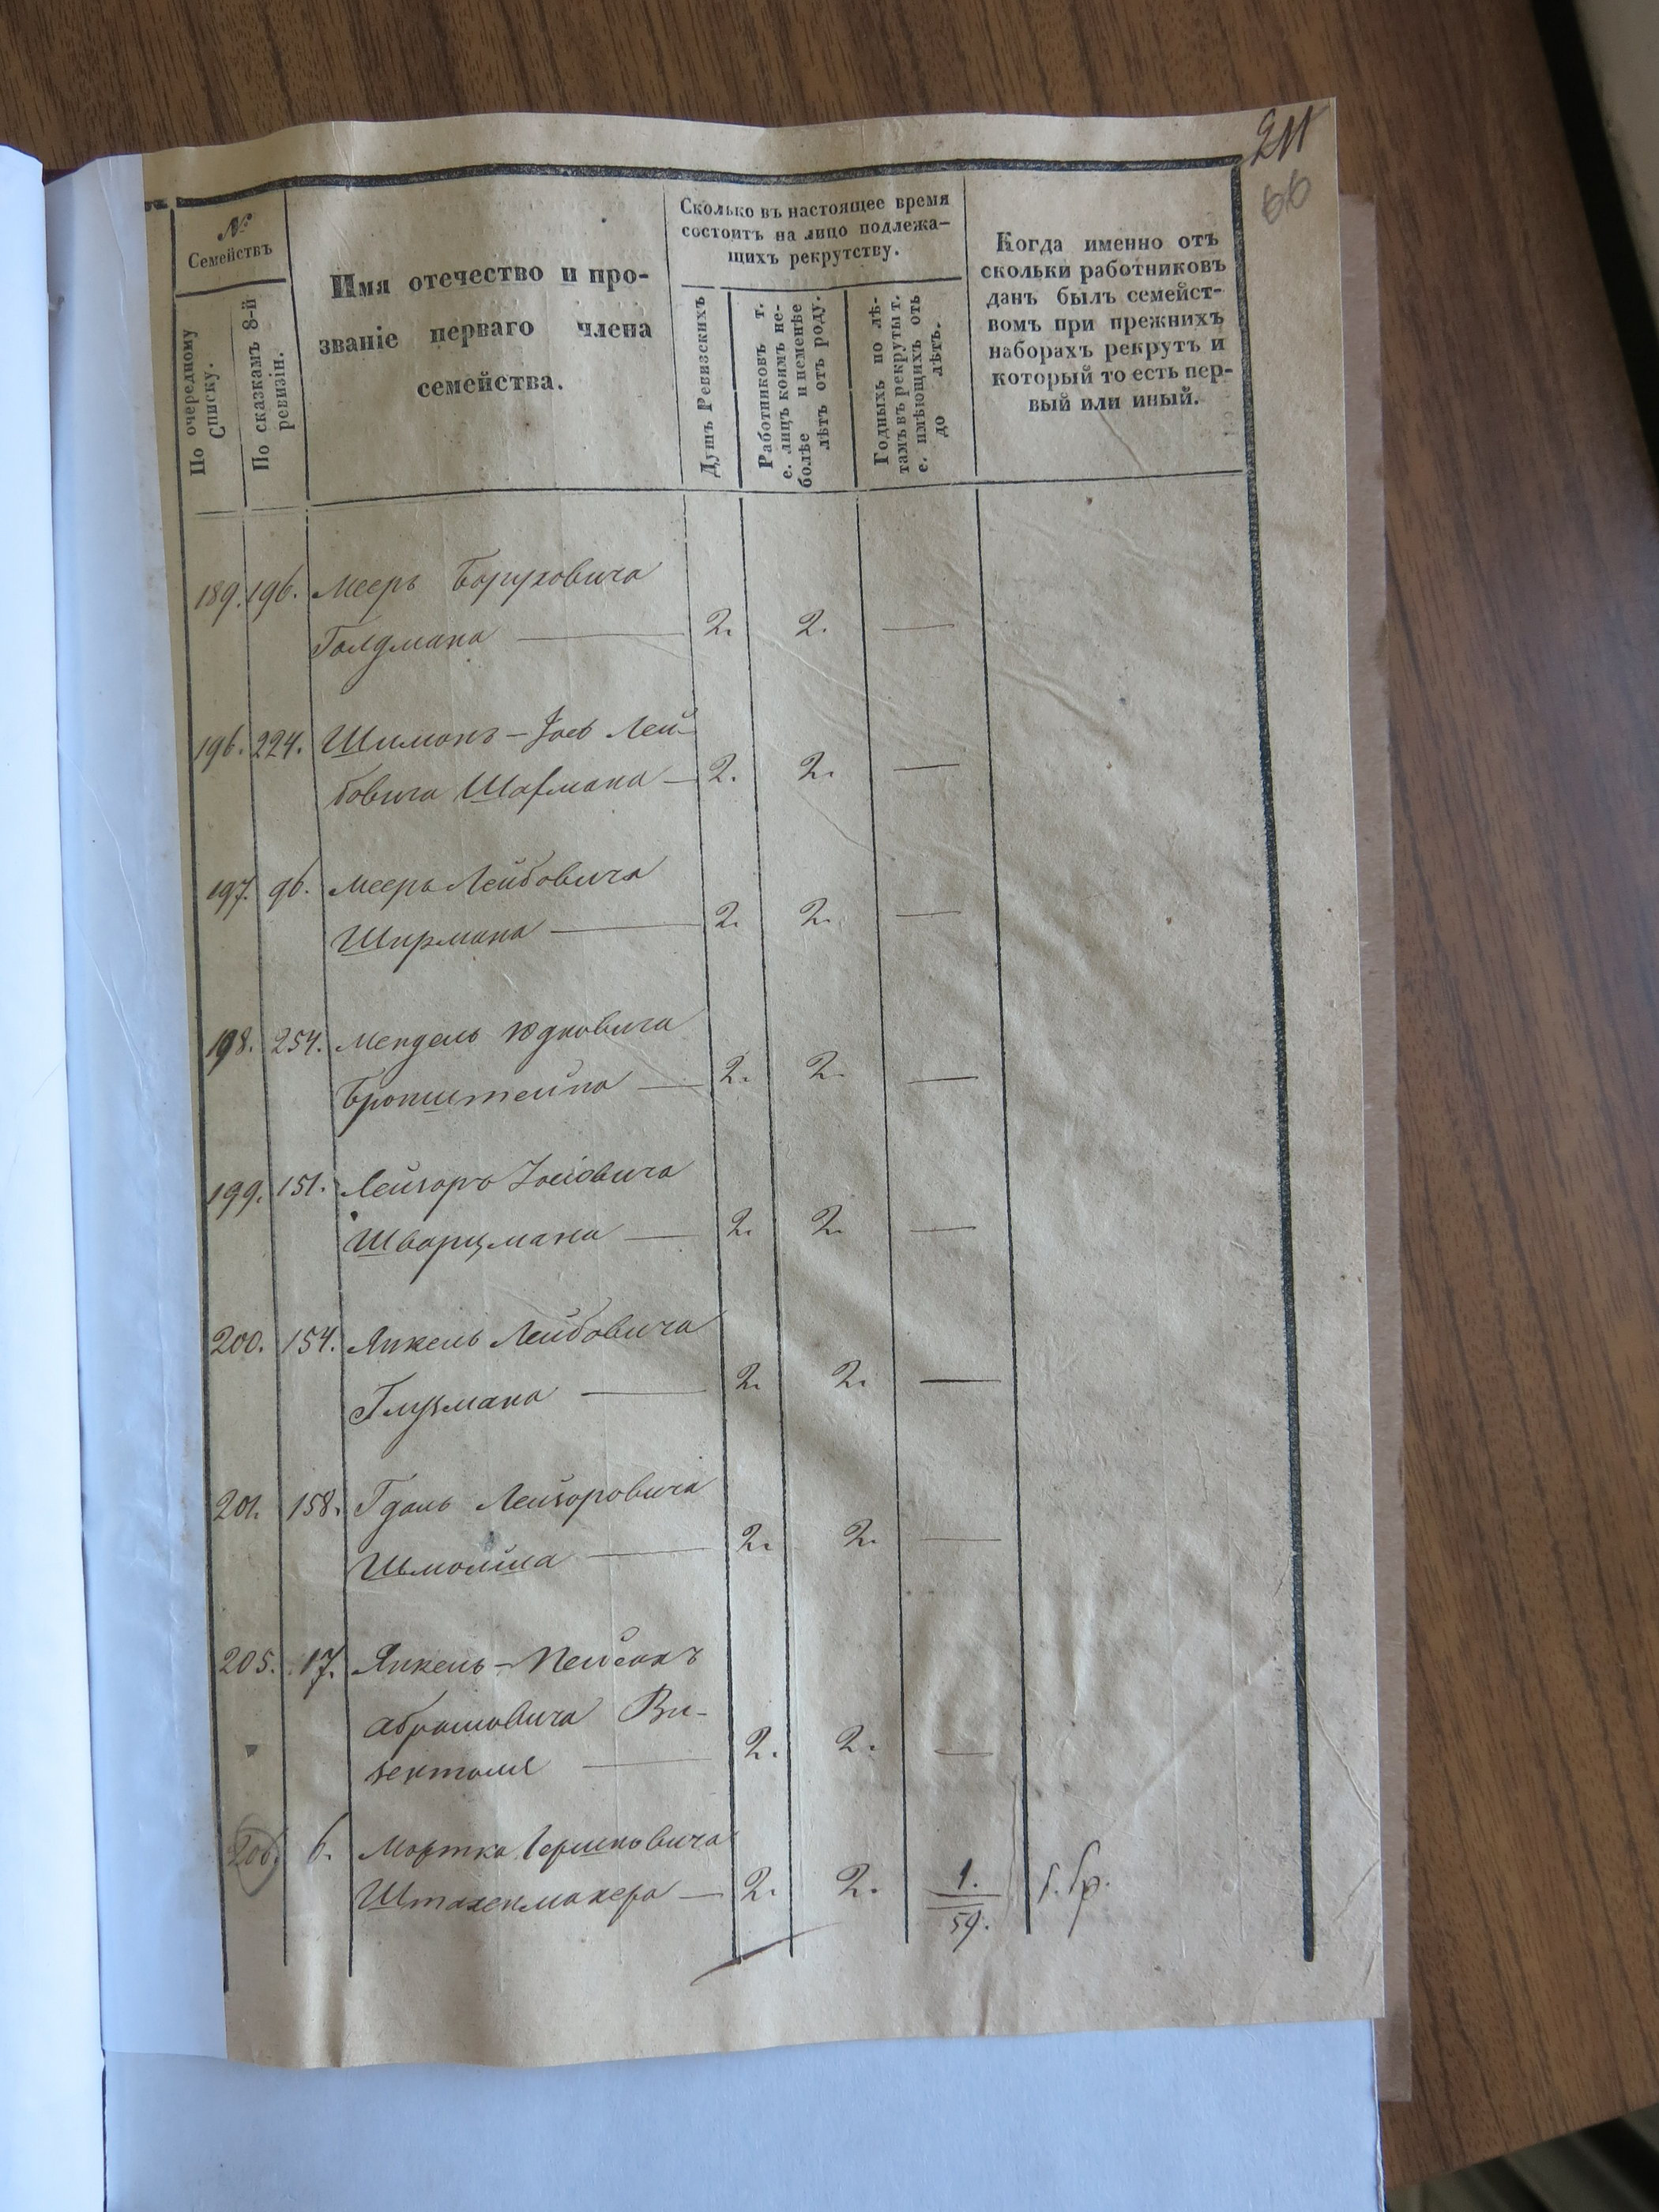 211
66
№
Семействъ
По очередному
Списку.
По сказкамъ 8-й
ревизіи.
Имя отечество и про-
званіе перваго члена
семейства.
Сколько въ настоящее время
состоитъ на лицо подлежа-
щихъ рекрутству.
Душъ Ревизскихъ
Работниковъ т.
е. лицъ коимъ не-
болѣе и неменѣе
лѣтъ отъ роду.
Годныхъ по лѣ-
тамъ въ рекруты т.
е. имѣющихъ отъ
до лѣтъ.
Когда именно отъ
скольки работниковъ
данъ былъ семейст-
вомъ при прежнихъ
наборахъ рекрутъ и
который то есть пер-
вый или иный.
189. 196. Мееръ Боруховича
Голдмана — 2. 2. —
196. 224. Шимонъ-Іось Лей-
бовича Шафмана — 2. 2. —
197. 96. Мееръ Лейбовича
Ширмана — 2. 2. —
198. 254. Мендель Юдковича
Бронштейна — 2. 2. —
199. 151. Лейзоръ Іосіовича
Шварцмана — 2. 2. —
200. 154. Янкель Лейбовича
Глузмана — 2. 2. —
201. 158. Гдаль Лейзоровича
Шмоліша — 2. 2. —
205. 17. Янкель-Пейсахъ
Абрамовича Ви-
зенталя — 2. 2. —
206. 6. Мортко Гершковича
Штахенмахера — 2. 2. 1.
59.